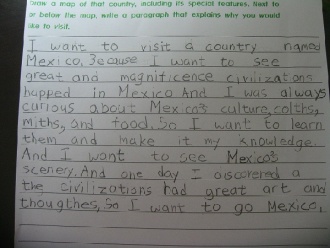 Draw a map of that country, including its special features. Next to
or below the map, write a paragraph that explains why you would
like to visit.
I want to visit a country named
Mexico, Because I want to see
great and magnificence civilizations
happed in Mexico And I was always
curious about Mexico's culture, colths,
miths, and food. So I want to learn
them and make it my knowledge.
And I want to see Mexico's
scenery. And one day I discovered a
the civilizations had great art and
thougthes, So I want to go Mexico.